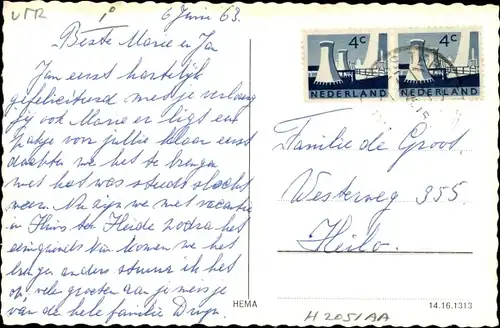 UTR
6 Juni 63.
Beste Marie en Jan
Jan eerst hartelijk
gefeliciteerd met je verjaardag
jij ook Marie er ligt een
pakje voor jullie klaar eerst
dachten we het te brengen
wat het was steeds slecht
weer. Nu zijn we met vacantie
in Huis ter Heide zodra het
enigzins kan komen we het
brengen anders stuur ik het
op, vele groeten aan je meisje
van de hele familie
4c
NEDERLAND
4c
NEDERLAND
Familie de Groot.
Westerweg 355.
Heilo.
HEMA
14.16.1313
H 2051 AA